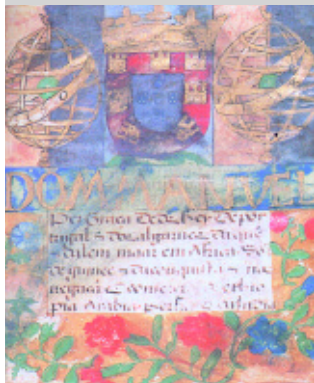 DOM MANVEL
Per Graça De ds Rey De por
tugal & dos algarues Daquē
& dalem maar em Africa Sõ
de guinee & da conquista & na
uegaçã & Comercio De ethio
pia Arabia persia & da India